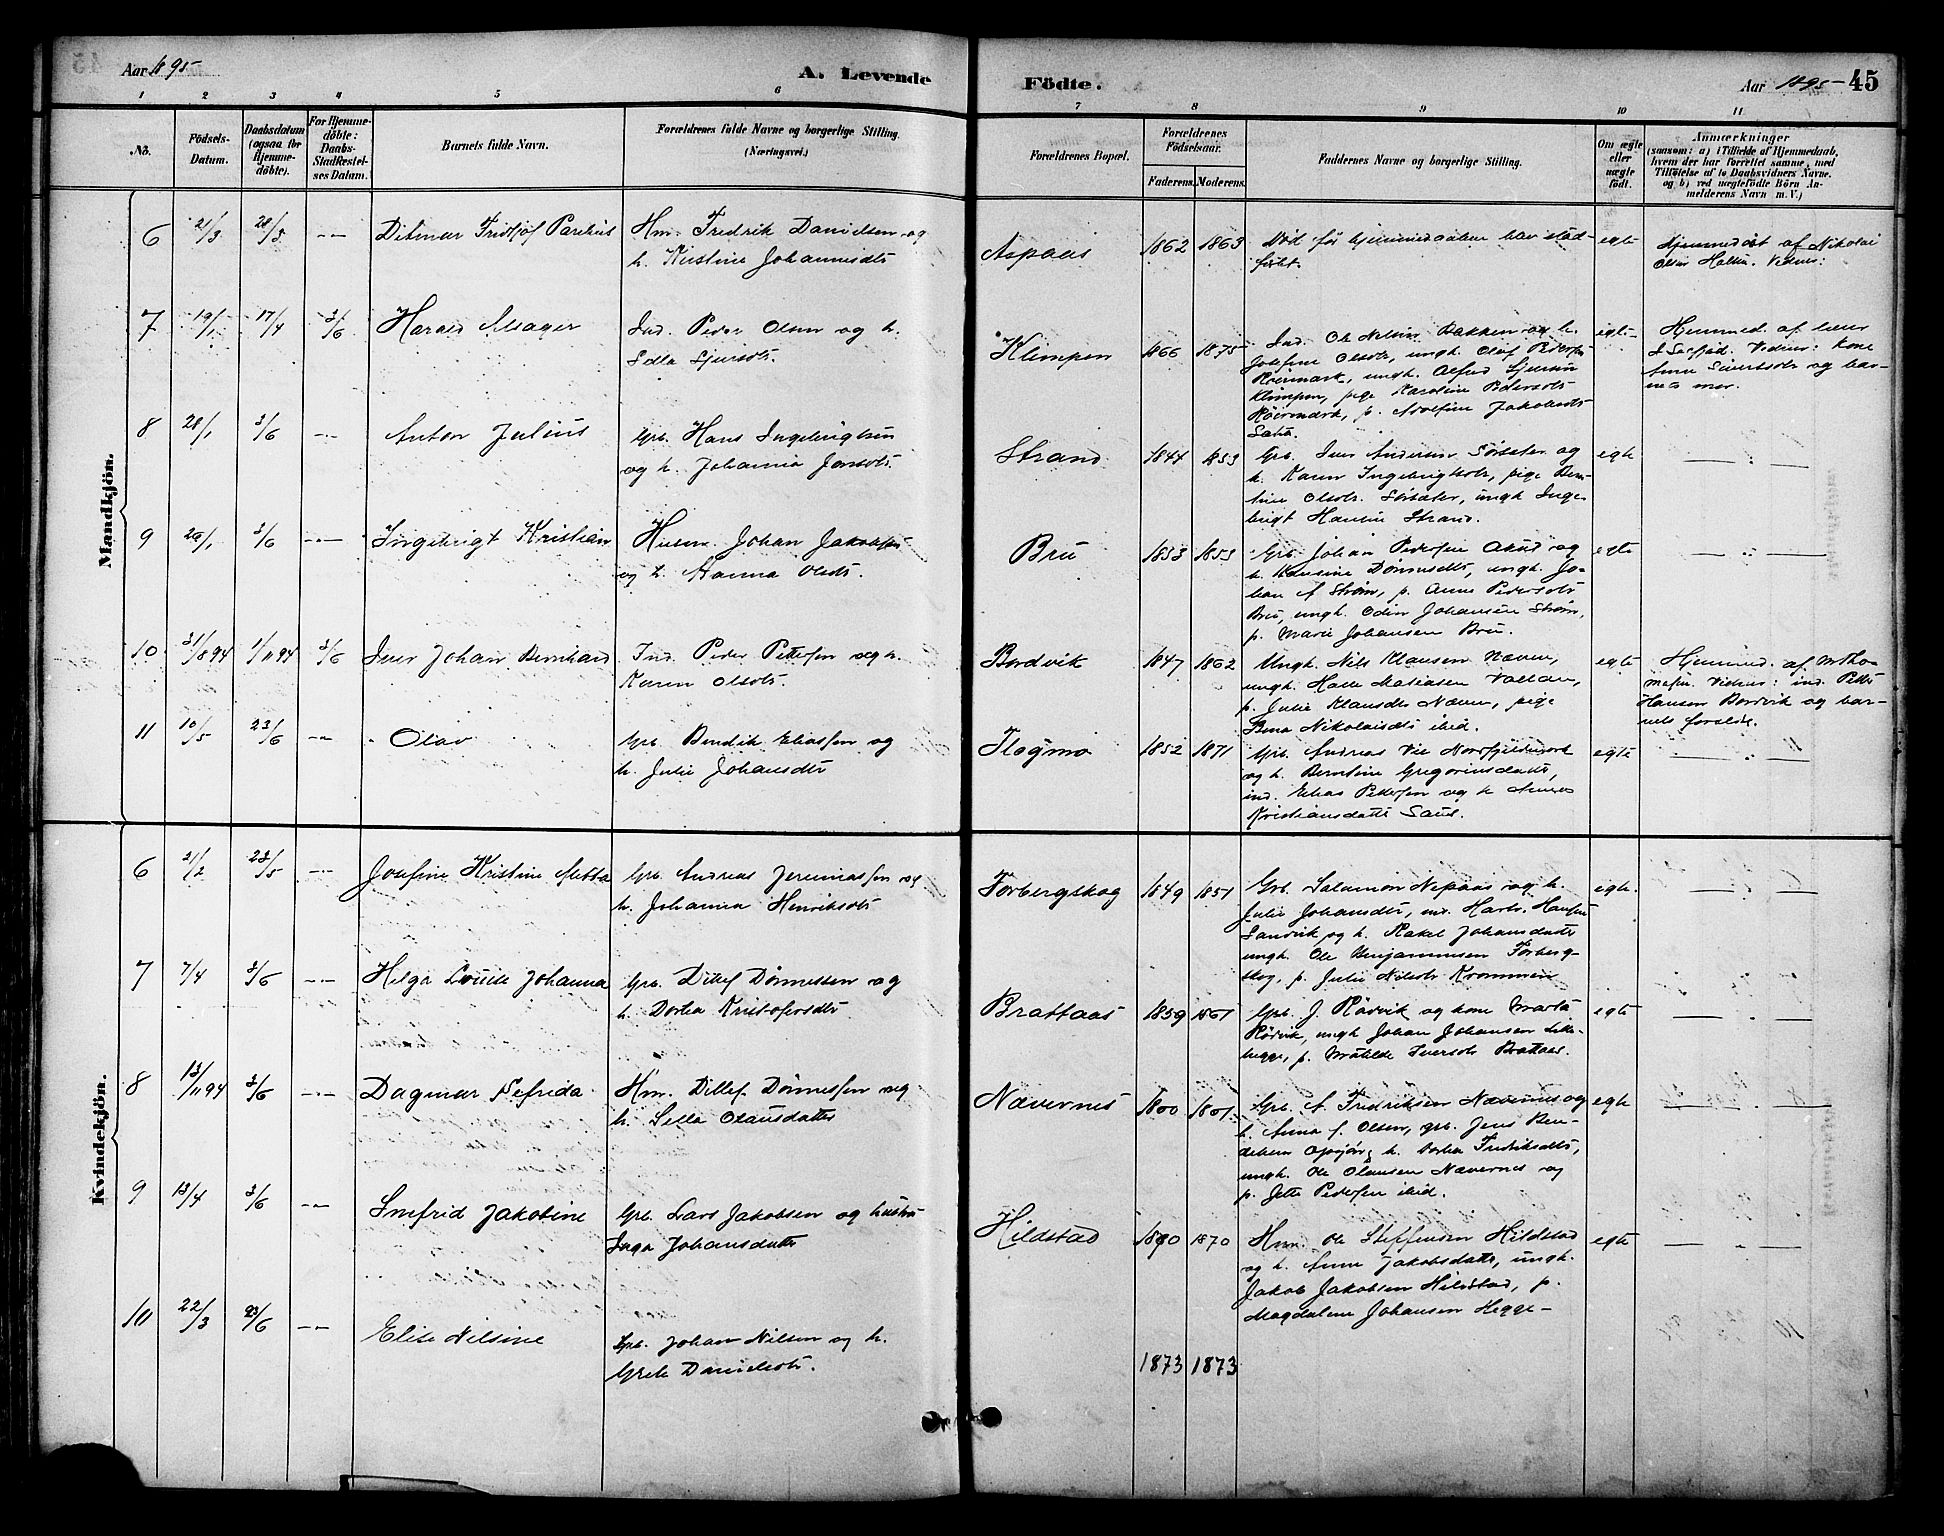 Aar 1895
A. Levende
Födte.
Aar 1895 45
1 2 3 4 5 6 7 8 9 10 11
No.
Födsels-
Datum.
Daabsdatum
(ogsaa for
Hjemme-
döbte).
For Hjemme-
döbte:
Daabs-
Stadfæstel-
ses Datum.
Barnets fulde Navn.
Forældrenes fulde Navne og borgerlige Stilling.
(Næringsvei.)
Forældrenes Bopæl.
Forældrenes
Födselsaar.
Faderens. Moderens.
Faddernes Navne og borgerlige Stilling.
Om ægte
eller
uægte
födt.
Anmærkninger
(saasom: a) i Tilfælde af Hjemmedaab,
hvem der har forrettet samme, med
Tilföielse af to Daabsvidners Navne,
og b) ved uægtefödte Börn An-
melderens Navn m. V.)
Mandkjön.
6 21/3 28/5 -"- Ditmar Fridtjof Parelius
Hm. Fredrik Danielsen og
h. Kirstine Johannesdtr
Aspaas 1862 1863
Død før hjemmedaaben blev stad-
fæstet.
egte
Hjemmedøbt af Nikolai
Vidner:
7 19/1 17/4 3/6 Harald Alsager
Ind. Peder Olsen og h.
Sella Sjursdtr.
Klimpen 1866 1875
Ind. Ole Nilsen Bakken og h.
Josefine Olsdtr, ungk. Olaf Pedersen
Røirmark, ungk. Alfred Sjursen
Klimpen, pige Karoline Pedersdtr
Røirmark, p. Adolfine Jakobsdtr
egte
Hjemmed. af lærer
Vidner: kone
Anne Sivertsdtr og bar-
nets mor.
8 28/1 3/6 -"- Anton Julius
Grb. Hans Ingebrigtsen
og h. Johanna Jonsdtr.
Strand 1844 1853
Grb. Iver Andersen Sørsæter og
h. Karen Ingebrigtsdtr, pige Bern-
tine Olsdtr. Sørsæter, ungk Inge-
brigt Hansen Strand.
egte
— " —
9 29/1 3/6 -"- Ingebrigt Kristian
Husm. Johan Jakobsen
og h. Hanna Olsdtr.
Bru 1853 1853
Grb. Johan Pedersen og
h. Dønnesdtr, ungk. Jo-
han A Strøm, p. Anne Pedersdtr
Bru, ungk. Odin Johansen Strøm,
p. Marie Johansen Bru.
egte
— " —
10 31/8 94 1/11 94 3/6 Iver Johan Bernhard
Ind. Peder Pettersen og h.
Karen Olsdtr.
Bordvik 1847 1862
Ungk. Nils Klausen Næven,
ungk. Halle Matiasen Vallan,
p. Julie Klausdtr Næven, pige
Bina Nikolaisdtr ibid.
egte
Hjemmed. af M. Tho-
mesen. Vidner: ind. Petter
Hansen Bordvik og bar-
nets forældre.
11 10/5 23/6 -"- Olav
Grb. Bendik Eliassen og
h. Julie Johansdtr
Flogmo 1852 1871
Grb. Andreas
og h. Berntine Gregoriusdatter,
ind. Elias Pedersen og h
Kristiansdatter
egte
— " —
Kvindekjön.
6 21/2 28/5 -"- Josefine Kristine Metta
Grb. Andreas Jeremiassen og
h. Johanna Henriksdtr
Forbergskog 1849 1851
Grb. Salamon Nepaas og h.
Julie Johansdtr, ind. Hartv. Hansen
Sandvik og h. Rakel Johansdatter
ungk. Ole Benjaminsen Forberg-
skog, p. Julie Nilsdtr Krommen
egte.
— " —
7 7/4 3/6 -"- Helga Louise Johanna
Grb. Ditlef Dønnessen og
h. Dorthea Kristofersdtr
Brattaas 1859 1861
Grb. J. Rødvik og kone Marta
Rødvik, ungk Johan Johansen Lille-
hegge, p. Matilde Iversdtr Brataas.
egte
— " —
8 13/11 94 3/6 -"- Dagmar Pefrida
Hm. Ditlef Dønnessen og
h. Sella Olausdatter
Nævernes 1860 1861
Grb. A. Fredriksen Nævernes og
h. Anna f. Olsen, grb. Jens Ben-
diksen h. Dorthea Fredriksdtr,
ungk. Ole Olausen Nævernes og
p. Jette Pedersen ibid.
egte
— " —
9 13/4 3/6 -"- Smefrid Jakobine
Grb. Lars Jakobsen og hustru
Inga Johansdatter
Hildstad 1870
Hm. Ole Steffensen Hildstad
og h. Anne Jakobsdatter, ungk.
Jakob Jakobsen Hildstad, p.
Magdalene Johansen Hegge-
egte
— " —
10 22/3 23/6 -"- Elise Nilsine
Grb. Johan Nilsen og h.
Grete Danielsdtr.
1873 1873